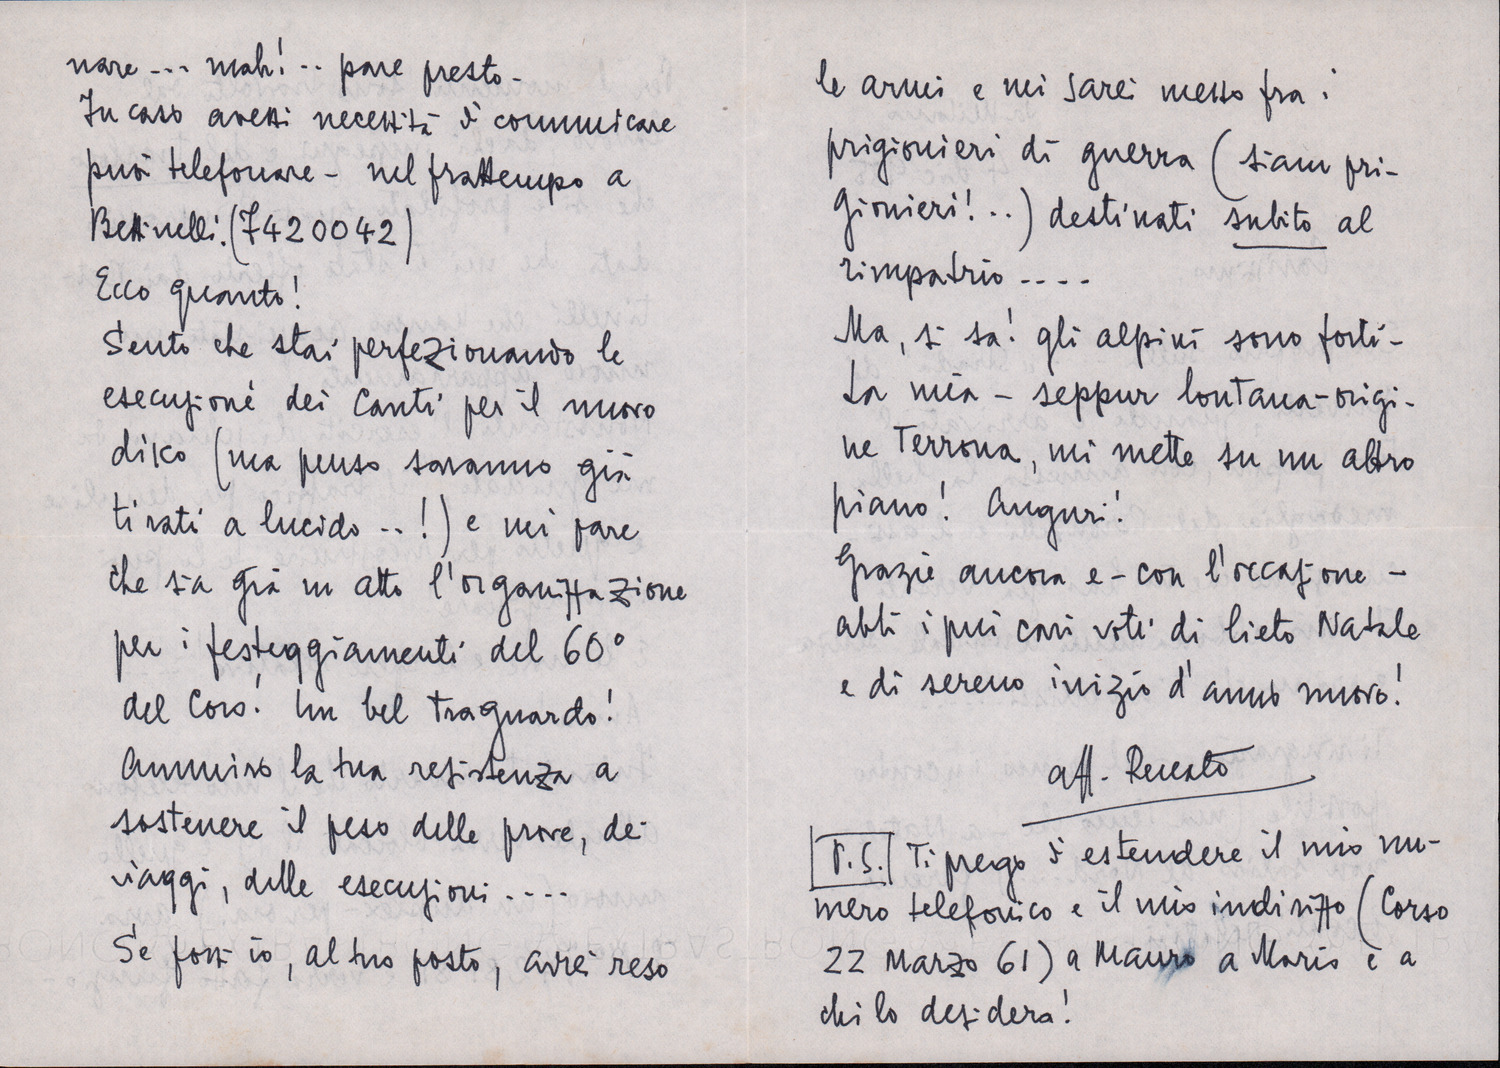 nare --- mah! .. pare presto -
In caso avessi necessità di comunicare
puoi telefonare - nel frattempo a
Bettinelli. (7420042)
Ecco quanto!
Sento che stai perfezionando le
esecuzioni dei Canti per il nuovo
disco (ma penso saranno già
tirati a lucido ..!) e mi pare
che sia già in atto l'organizzazione
per i festeggiamenti del 60°
del Coro! Un bel traguardo!
Ammiro la tua resistenza a
sostenere il peso delle prove, dei
viaggi, delle esecuzioni ....
Se fossi io, al tuo posto, avrei reso
le armi e mi sarei messo fra i
prigionieri di guerra (siam pri-
gionieri! ..) destinati subito al
rimpatrio ----
Ma, si sa! gli alpini sono forti -
La mia - seppur lontana - origi-
ne Terrona, mi mette su un altro
piano! Auguri!
Grazie ancora e - con l'occasione -
abbi i più cari voti di lieto Natale
e di sereno inizio d'anno nuovo!
aff. Renato
P.S. Ti prego di estendere il mio nu-
mero telefonico e il mio indirizzo (Corso
22 Marzo 61) a Mauro a Mario e a
chi lo desidera!